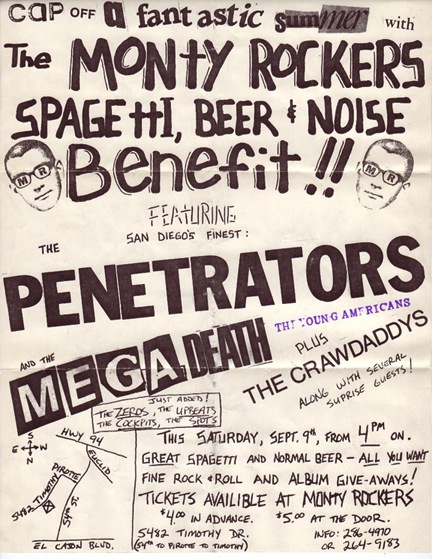 cap OFF a fantastic summer with
The MONTY ROCKERS
SPAGETTI, BEER & NOISE
Benefit!!
MR
MR
FEATURING
SAN DIEGO'S FINEST:
THE
PENETRATORS
THE YOUNG AMERICANS
AND THE
MEGA DEATH
PLUS
THE CRAWDADDYS
ALONG WITH SEVERAL
SUPRISE GUESTS!
JUST ADDED!
THE ZEROS, THE UPBEATS
THE COCKPITS, THE SPOTS
N
S
E
W
HWY 94
EUCLID
PIROTTE
5482 TIMOTHY
54TH ST.
EL CAJON BLVD.
THIS SATURDAY, SEPT. 9th, FROM 4PM ON.
GREAT SPAGETTI AND NORMAL BEER - ALL YOU WANT
FINE ROCK & ROLL AND ALBUM GIVE-AWAYS!
TICKETS AVAILIBLE AT MONTY ROCKERS
$4.00 IN ADVANCE. $5.00 AT THE DOOR.
5482 TIMOTHY DR.
(54TH TO PIROTTE TO TIMOTHY)
INFO: 286-4970
OR 264-9183